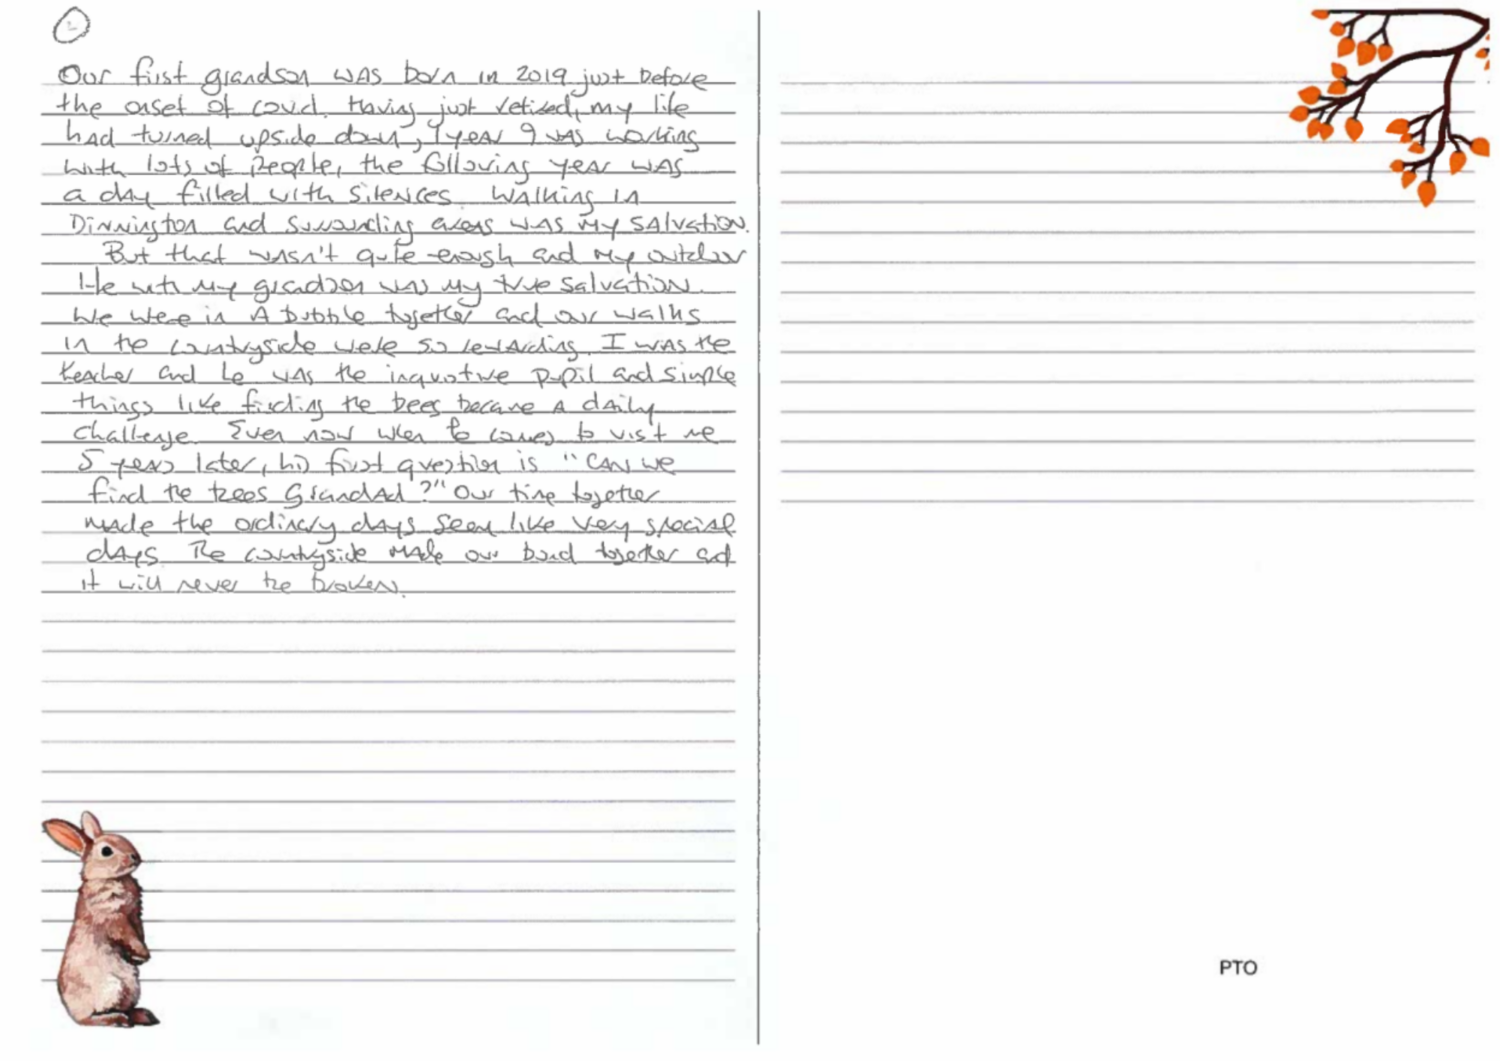 Our first grandson was born in 2019 just before
the onset of covid. Having just retired, my life
had turned upside down, 1 year I was working
with lots of people, the following year was
a day filled with silences. Walking in
Dinnington and surrounding areas was my salvation.
But that wasn't quite enough and my outdoor
life with my grandson was my true salvation.
We were in a bubble together and our walks
in the countryside were so rewarding. I was the
teacher and he was the inquisitive pupil and simple
things like finding the bees became a daily
challenge. Even now when he comes to visit me
5 years later, his first question is "Can we
find the bees Grandad?" Our time together
made the ordinary days seem like very special
days. The countryside made our bond together and
it will never be broken.
PTO